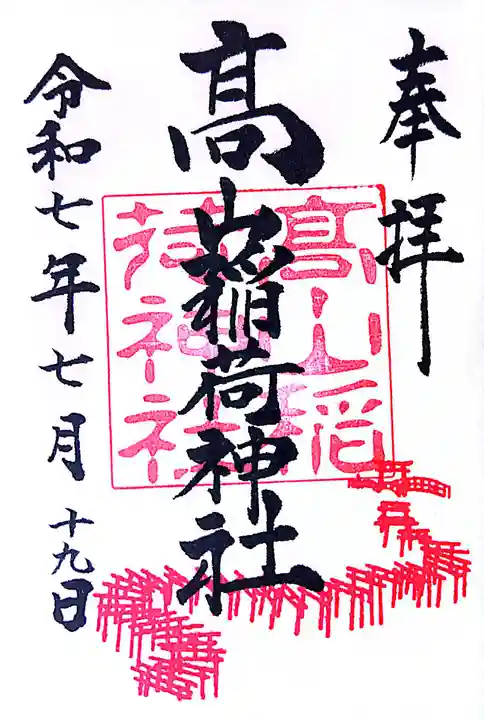 奉拝
髙山稲荷神社
髙山稲荷神社
令和七年七月十九日